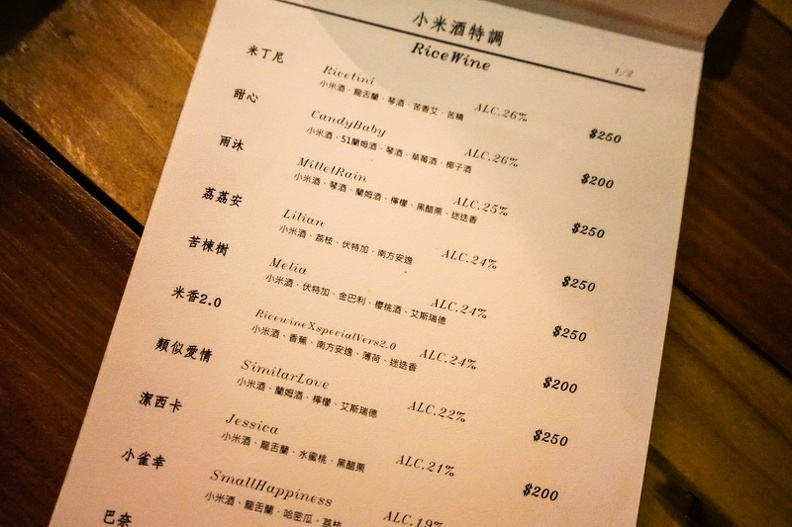 小米酒特調
RiceWine
1/2
米丁尼 Ricetini ALC.26% $250
小米酒、龍舌蘭、琴酒、苦香艾、苦精
甜心 CandyBaby ALC.26% $200
小米酒、51蘭姆酒、琴酒、草莓酒、椰子酒
雨沐 MilletRain ALC.25% $250
小米酒、琴酒、蘭姆酒、檸檬、黑醋栗、迷迭香
荔荔安 Lilian ALC.24% $250
小米酒、荔枝、伏特加、南方安逸
苦楝樹 Melia ALC.24% $250
小米酒、伏特加、金巴利、櫻桃酒、艾斯瑞德
米香2.0 RicewineXspecialVers2.0 ALC.24% $200
小米酒、香蕉、南方安逸、薄荷、迷迭香
類似愛情 SimilarLove ALC.22% $250
小米酒、蘭姆酒、檸檬、艾斯瑞德
潔西卡 Jessica ALC.21% $200
小米酒、龍舌蘭、水蜜桃、黑醋栗
小雀幸 SmallHappiness ALC.19%
小米酒、龍舌蘭、哈密瓜、荔枝
巴奈